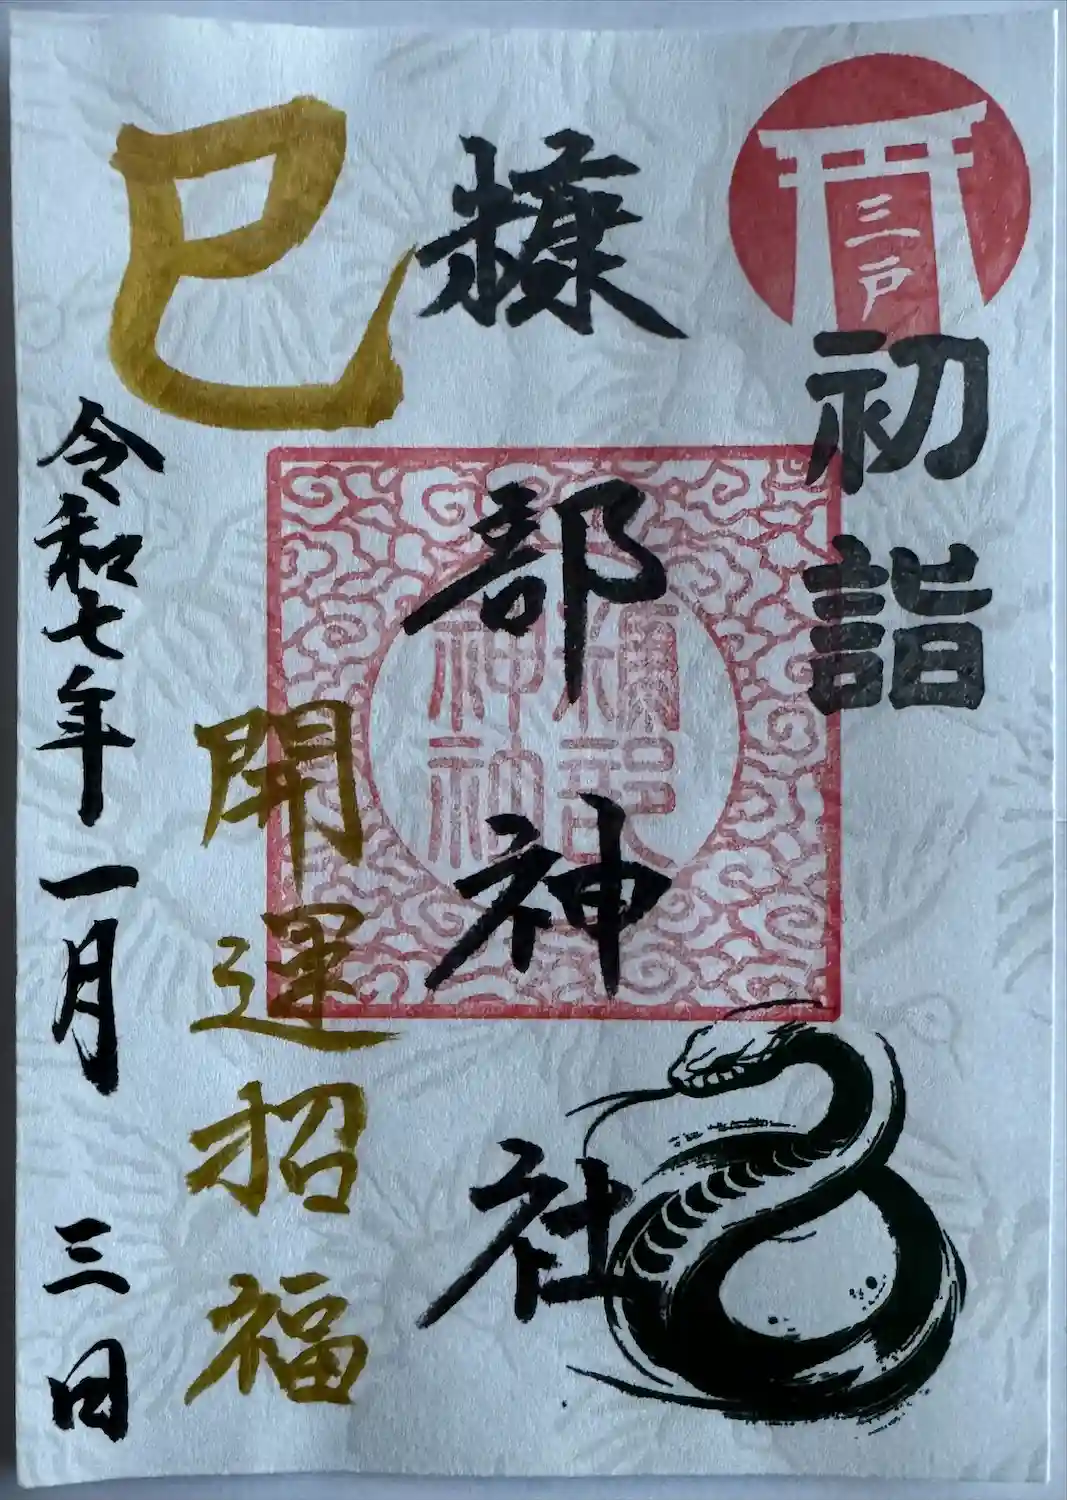 三戸
初詣
糠部神社
糠部
神社
巳
開運招福
令和七年一月三日